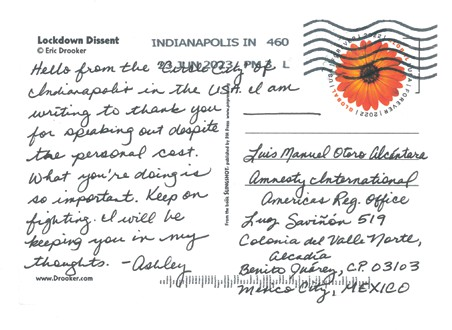 Lockdown Dissent
© Eric Drooker
INDIANAPOLIS IN 460
23 JUN 2023 PM 2 L
Hello from the Circle City of
Indianapolis in the USA. I am
writing to thank you
for speaking out despite
the personal cost.
What you're doing is
so important. Keep on
fighting. I will be
keeping you in my
thoughts. -Ashley
www.Drooker.com
From the book SLINGSHOT, published by PM Press
GLOBAL USA FOREVER 2022
Luis Manuel Otero Alcántara
Amnesty International
Americas Reg. Office
Luz Saviñón 519
Colonia del Valle Norte,
Alcadía
Benito Juárez, C.P. 03103
Mexico City, MEXICO